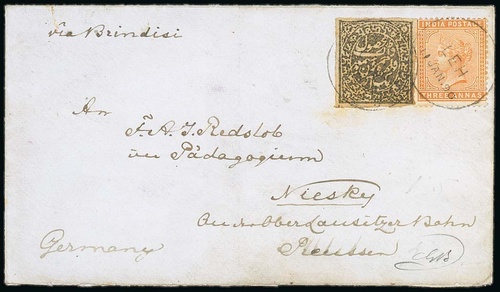 via Brindisi
INDIA POSTAGE
LEH
1 JAN. 90
THREE ANNAS
An
F. A. J. Redslob
im Pädagogium
Niesky
an der Oberlausitzer Bahn
Preussen
Germany